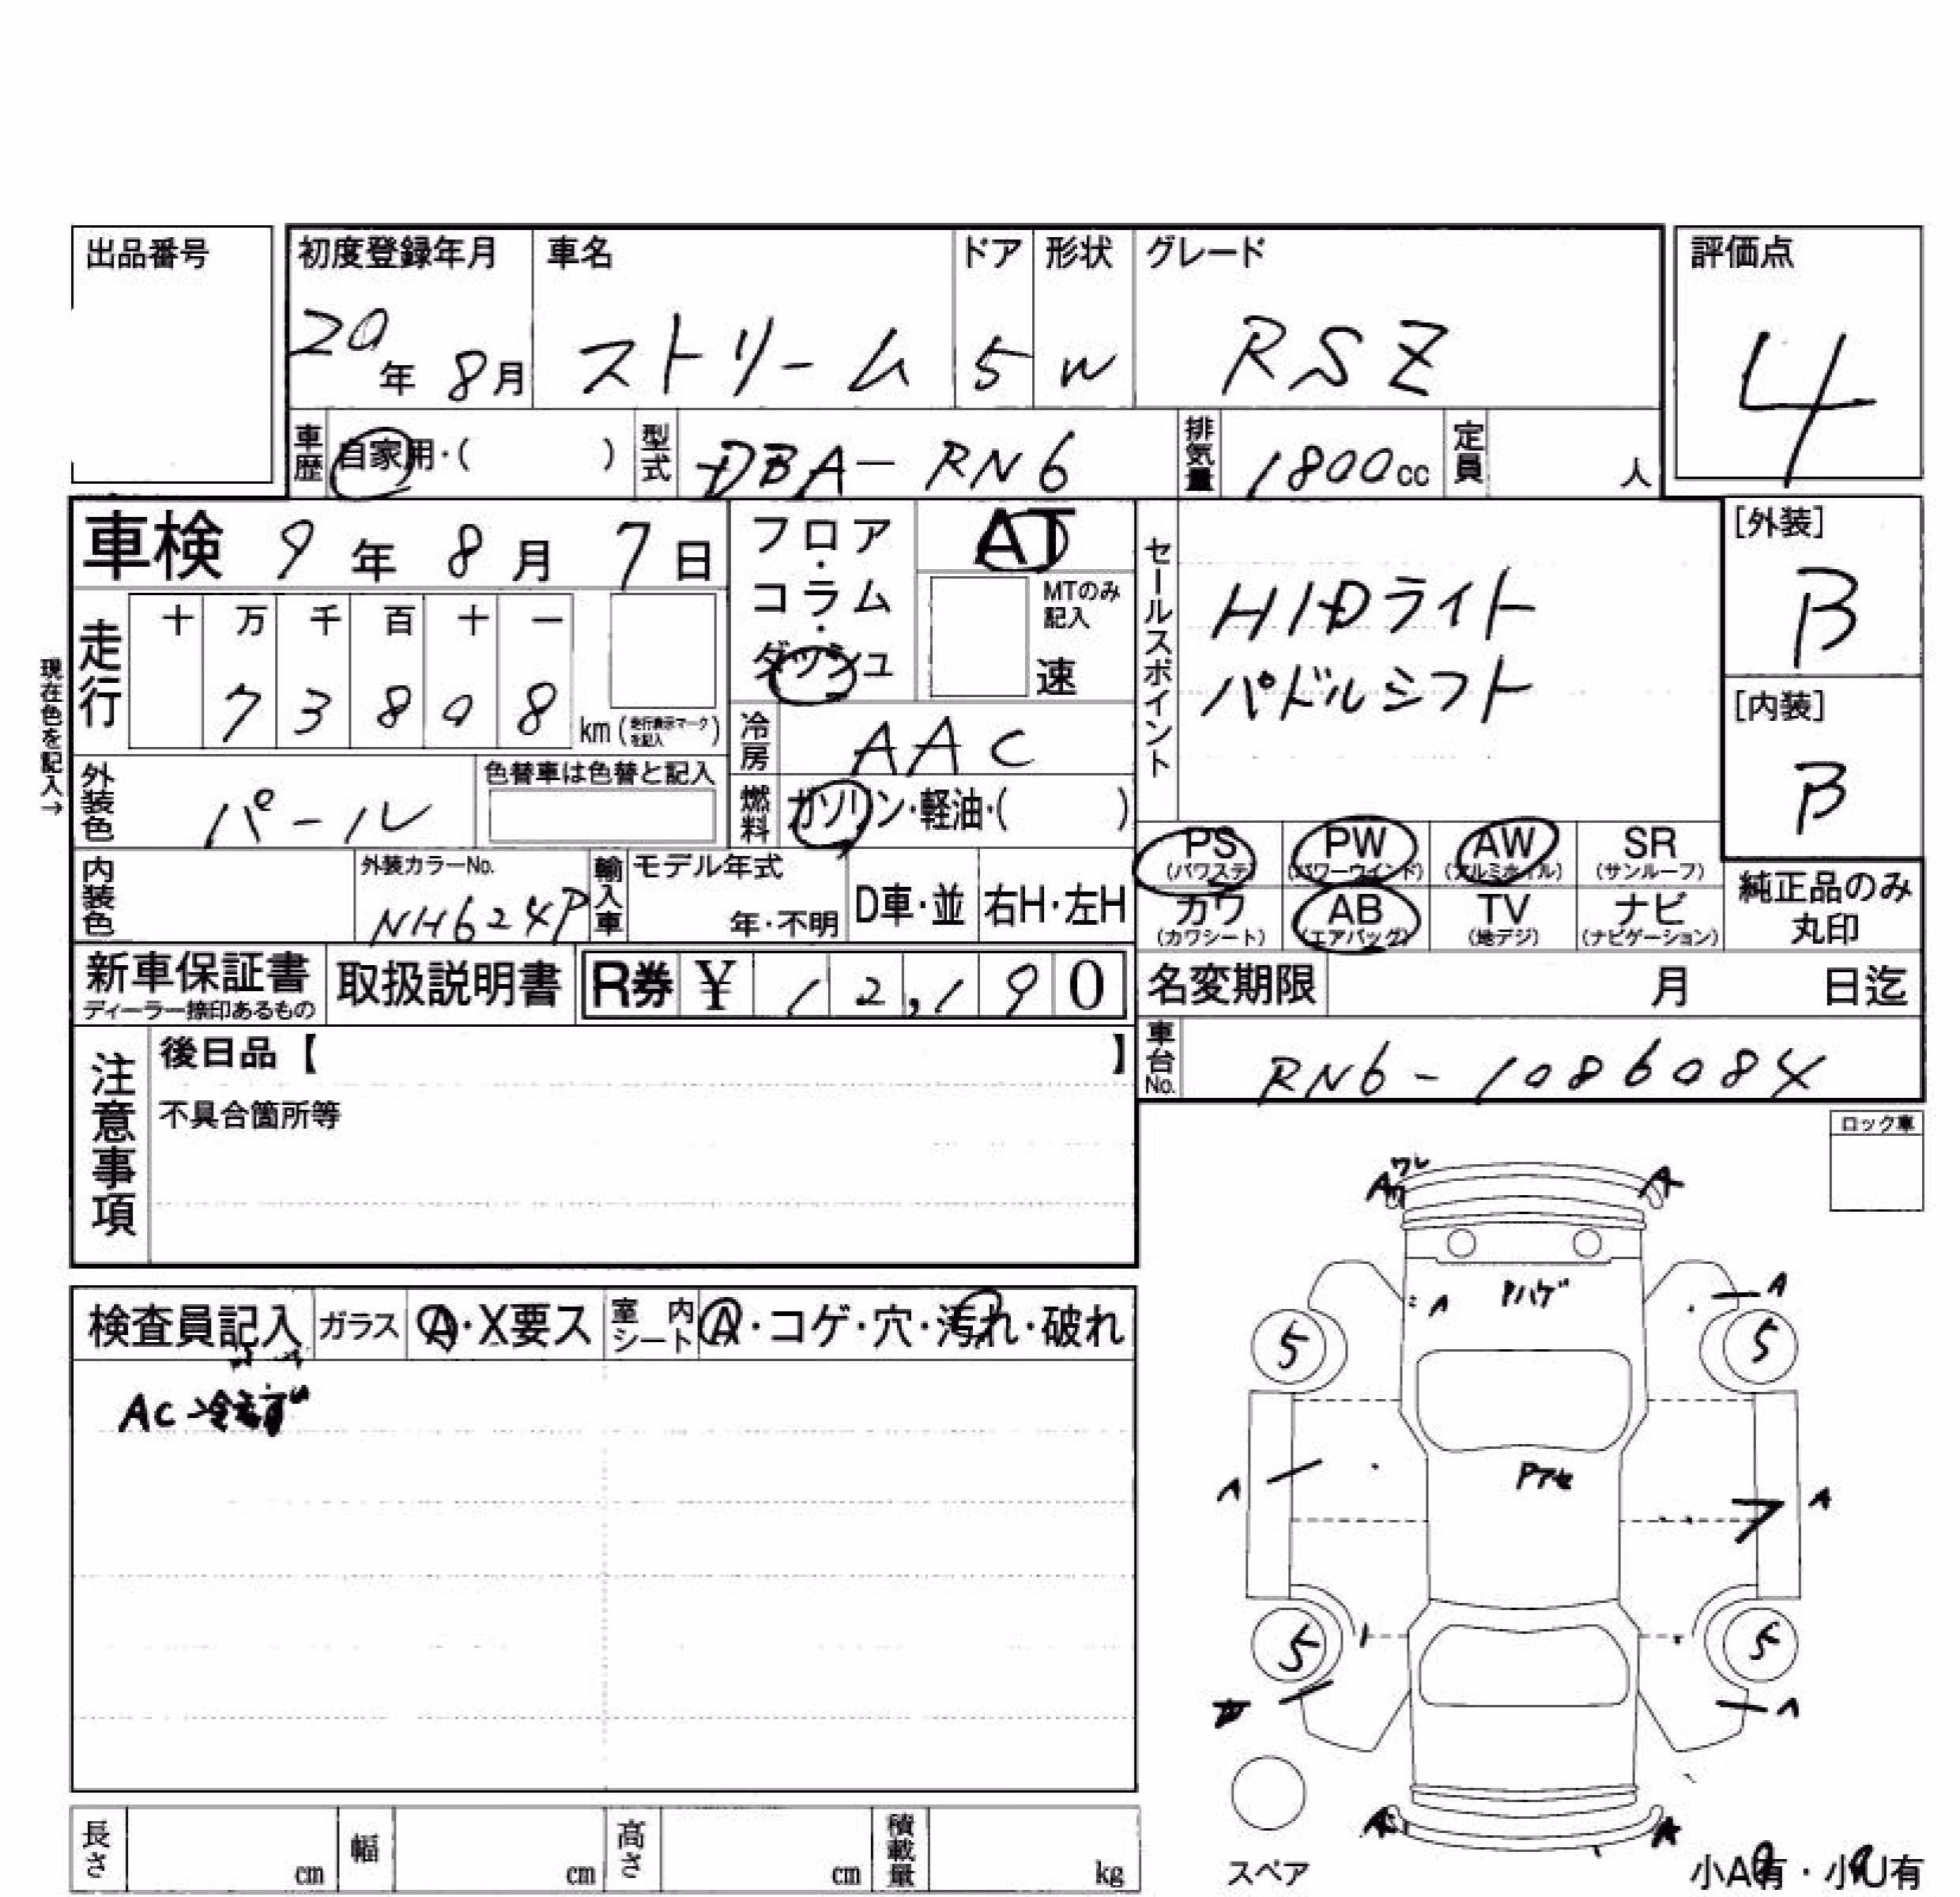 出品番号
初度登録年月 車名 ドア 形状 グレード
評価点
20年 8月 ストリーム 5 W RSZ
4
車歴 自家用・( ) 型式 DBA-RN6 排気量 1800cc 定員 人
車検 9年 8月 7日
フロア・コラム・ダッシュ
AT
MTのみ記入
速
セールスポイント
HIDライト
パドルシフト
[外装]
B
[内装]
B
現在色を記入→
走行 十 万 千 百 十 一
7 3 8 0 8 km (走行表示マークを記入)
冷房 AAC
外装色 パール 色替車は色替と記入
燃料 ガソリン・軽油・( )
PS (パワステ) PW (パワーウインド) AW (アルミホイル) SR (サンルーフ)
カワ (カワシート) AB (エアバッグ) TV (地デジ) ナビ (ナビゲーション)
純正品のみ丸印
内装色 外装カラーNo. NH624P 輸入車 モデル年式 年・不明 D車・並 右H・左H
新車保証書 ディーラー捺印あるもの 取扱説明書 R券 ¥ 12,190
名変期限 月 日迄
車台No. RN6-1086084
注意事項
後日品【 】
不具合箇所等
ロック車
検査員記入 ガラス A・X要ス 室内シート A・コゲ・穴・汚れ・破れ
AC
ワレ
A A
A Pハゲ A
5 5
Pアセ
A A
5 5
A
A A
スペア
小A有・小U有
長さ cm 幅 cm 高さ cm 積載量 kg